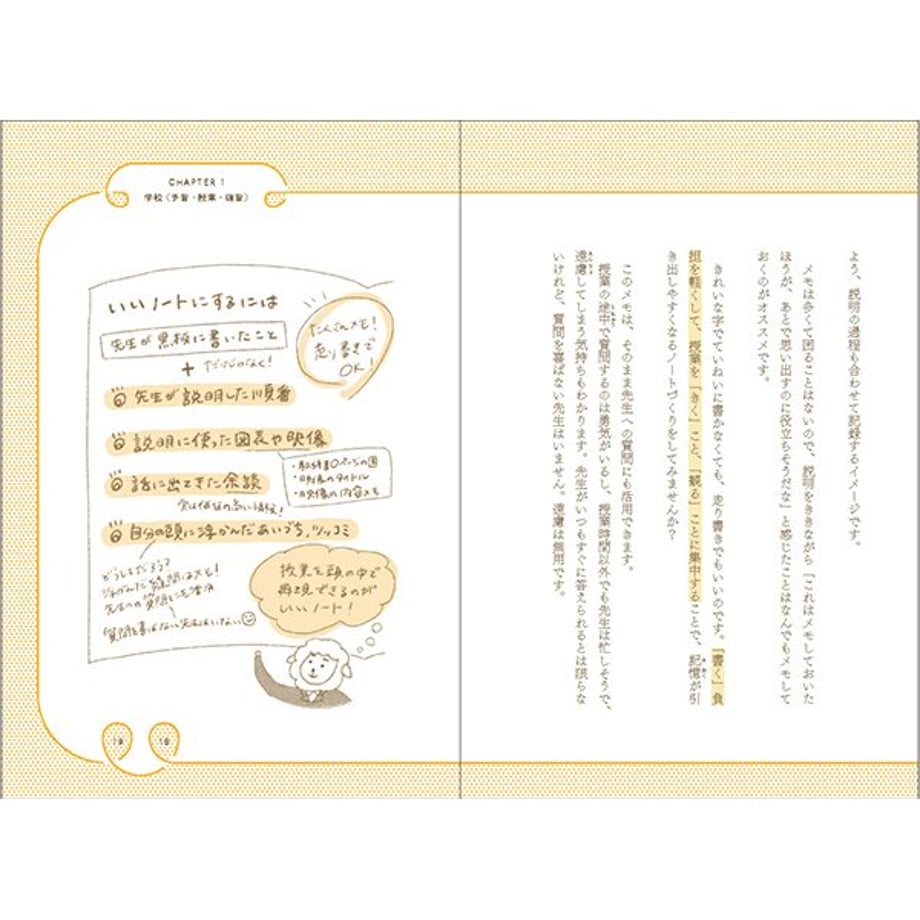 よう、説明の過程も合わせて記録するイメージです。
メモは多くて困ることはないので、説明をききながら「これはメモしておいた
ほうが、あとで思い出すのに役立ちそうだな」と感じたことはなんでもメモして
おくのがオススメです。
きれいな字でていねいに書かなくても、走り書きでもいいのです。「書く」負
担を軽くして、授業を「きく」こと、「観る」ことに集中することで、記憶が引
き出しやすくなるノートづくりをしてみませんか?
このメモは、そのまま先生への質問にも活用できます。
授業の途中で質問するのは勇気がいるし、授業時間以外でも先生は忙しそうで、
遠慮してしまう気持ちもわかります。先生がいつもすぐに答えられるとは限らな
いけれど、質問を喜ばない先生はいません。遠慮は無用です。
CHAPTER 1
学校(予習・授業・復習)
いいノートにするには
先生が黒板に書いたこと
+ だけじゃなく!
たくさんメモ!
走り書きで
OK!
先生が説明した順番
説明に使った図表や映像
・教科書○ページの図
・映像のタイトル
・映像の内容メモ
話に出てきた余談
実は価値の高い情報!
自分の頭に浮かんだあいづち、ツッコミ
どうしてだろう?
浮かんだ疑問はメモ!
先生への質問にも活用
質問を喜ばない先生はいない
授業を頭の中で
再現できるのが
いいノート!
19
18